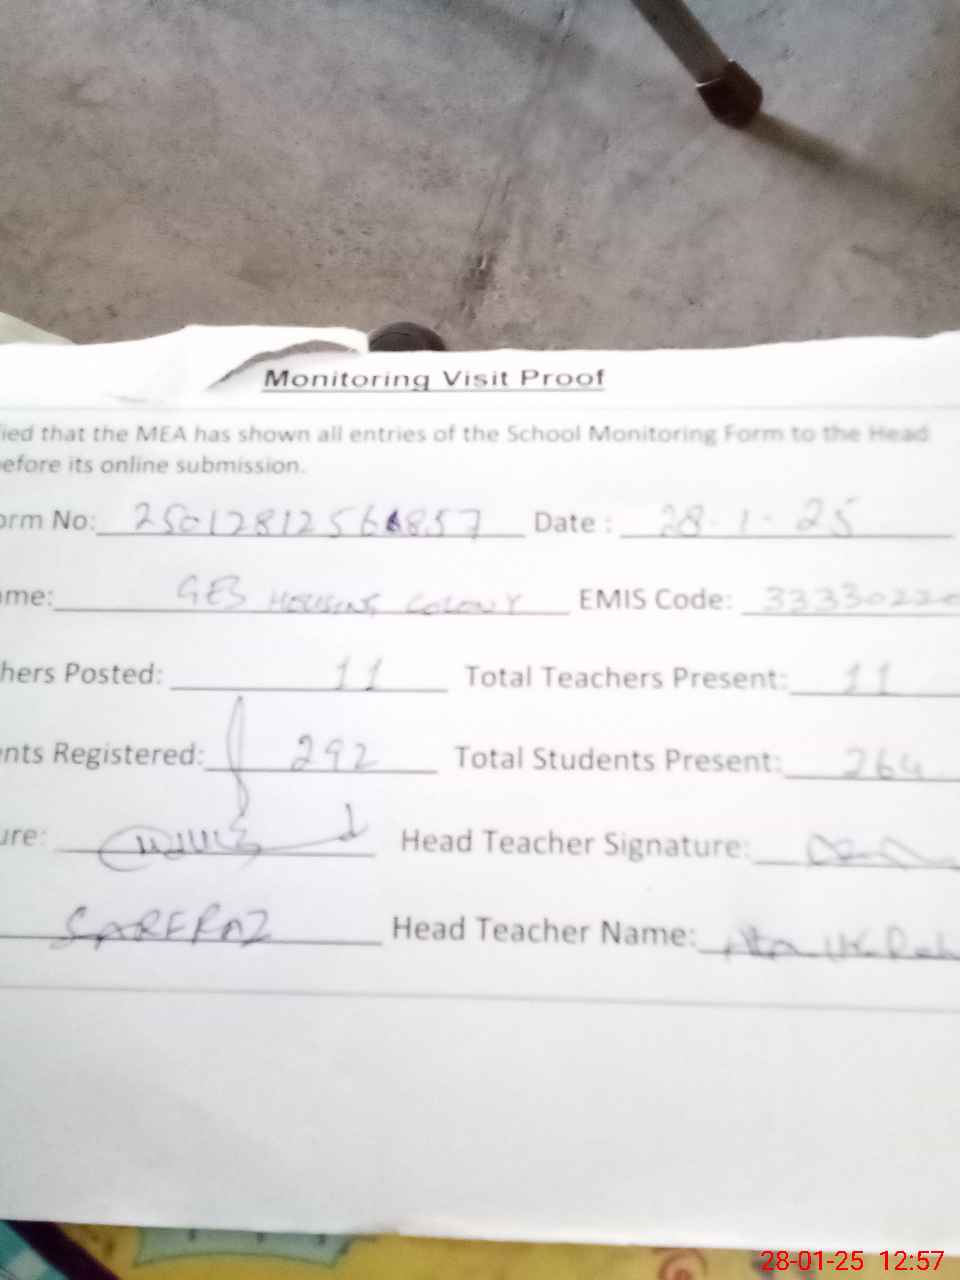 Monitoring Visit Proof
ied that the MEA has shown all entries of the School Monitoring Form to the Head
efore its online submission.
orm No: 25012812566857 Date : 28-1-25
ame: GES HOUSING COLONY EMIS Code: 3333022
hers Posted: 11 Total Teachers Present: 11
nts Registered: 292 Total Students Present: 264
ure: Head Teacher Signature:
SARFRAZ Head Teacher Name:
28-01-25 12:57